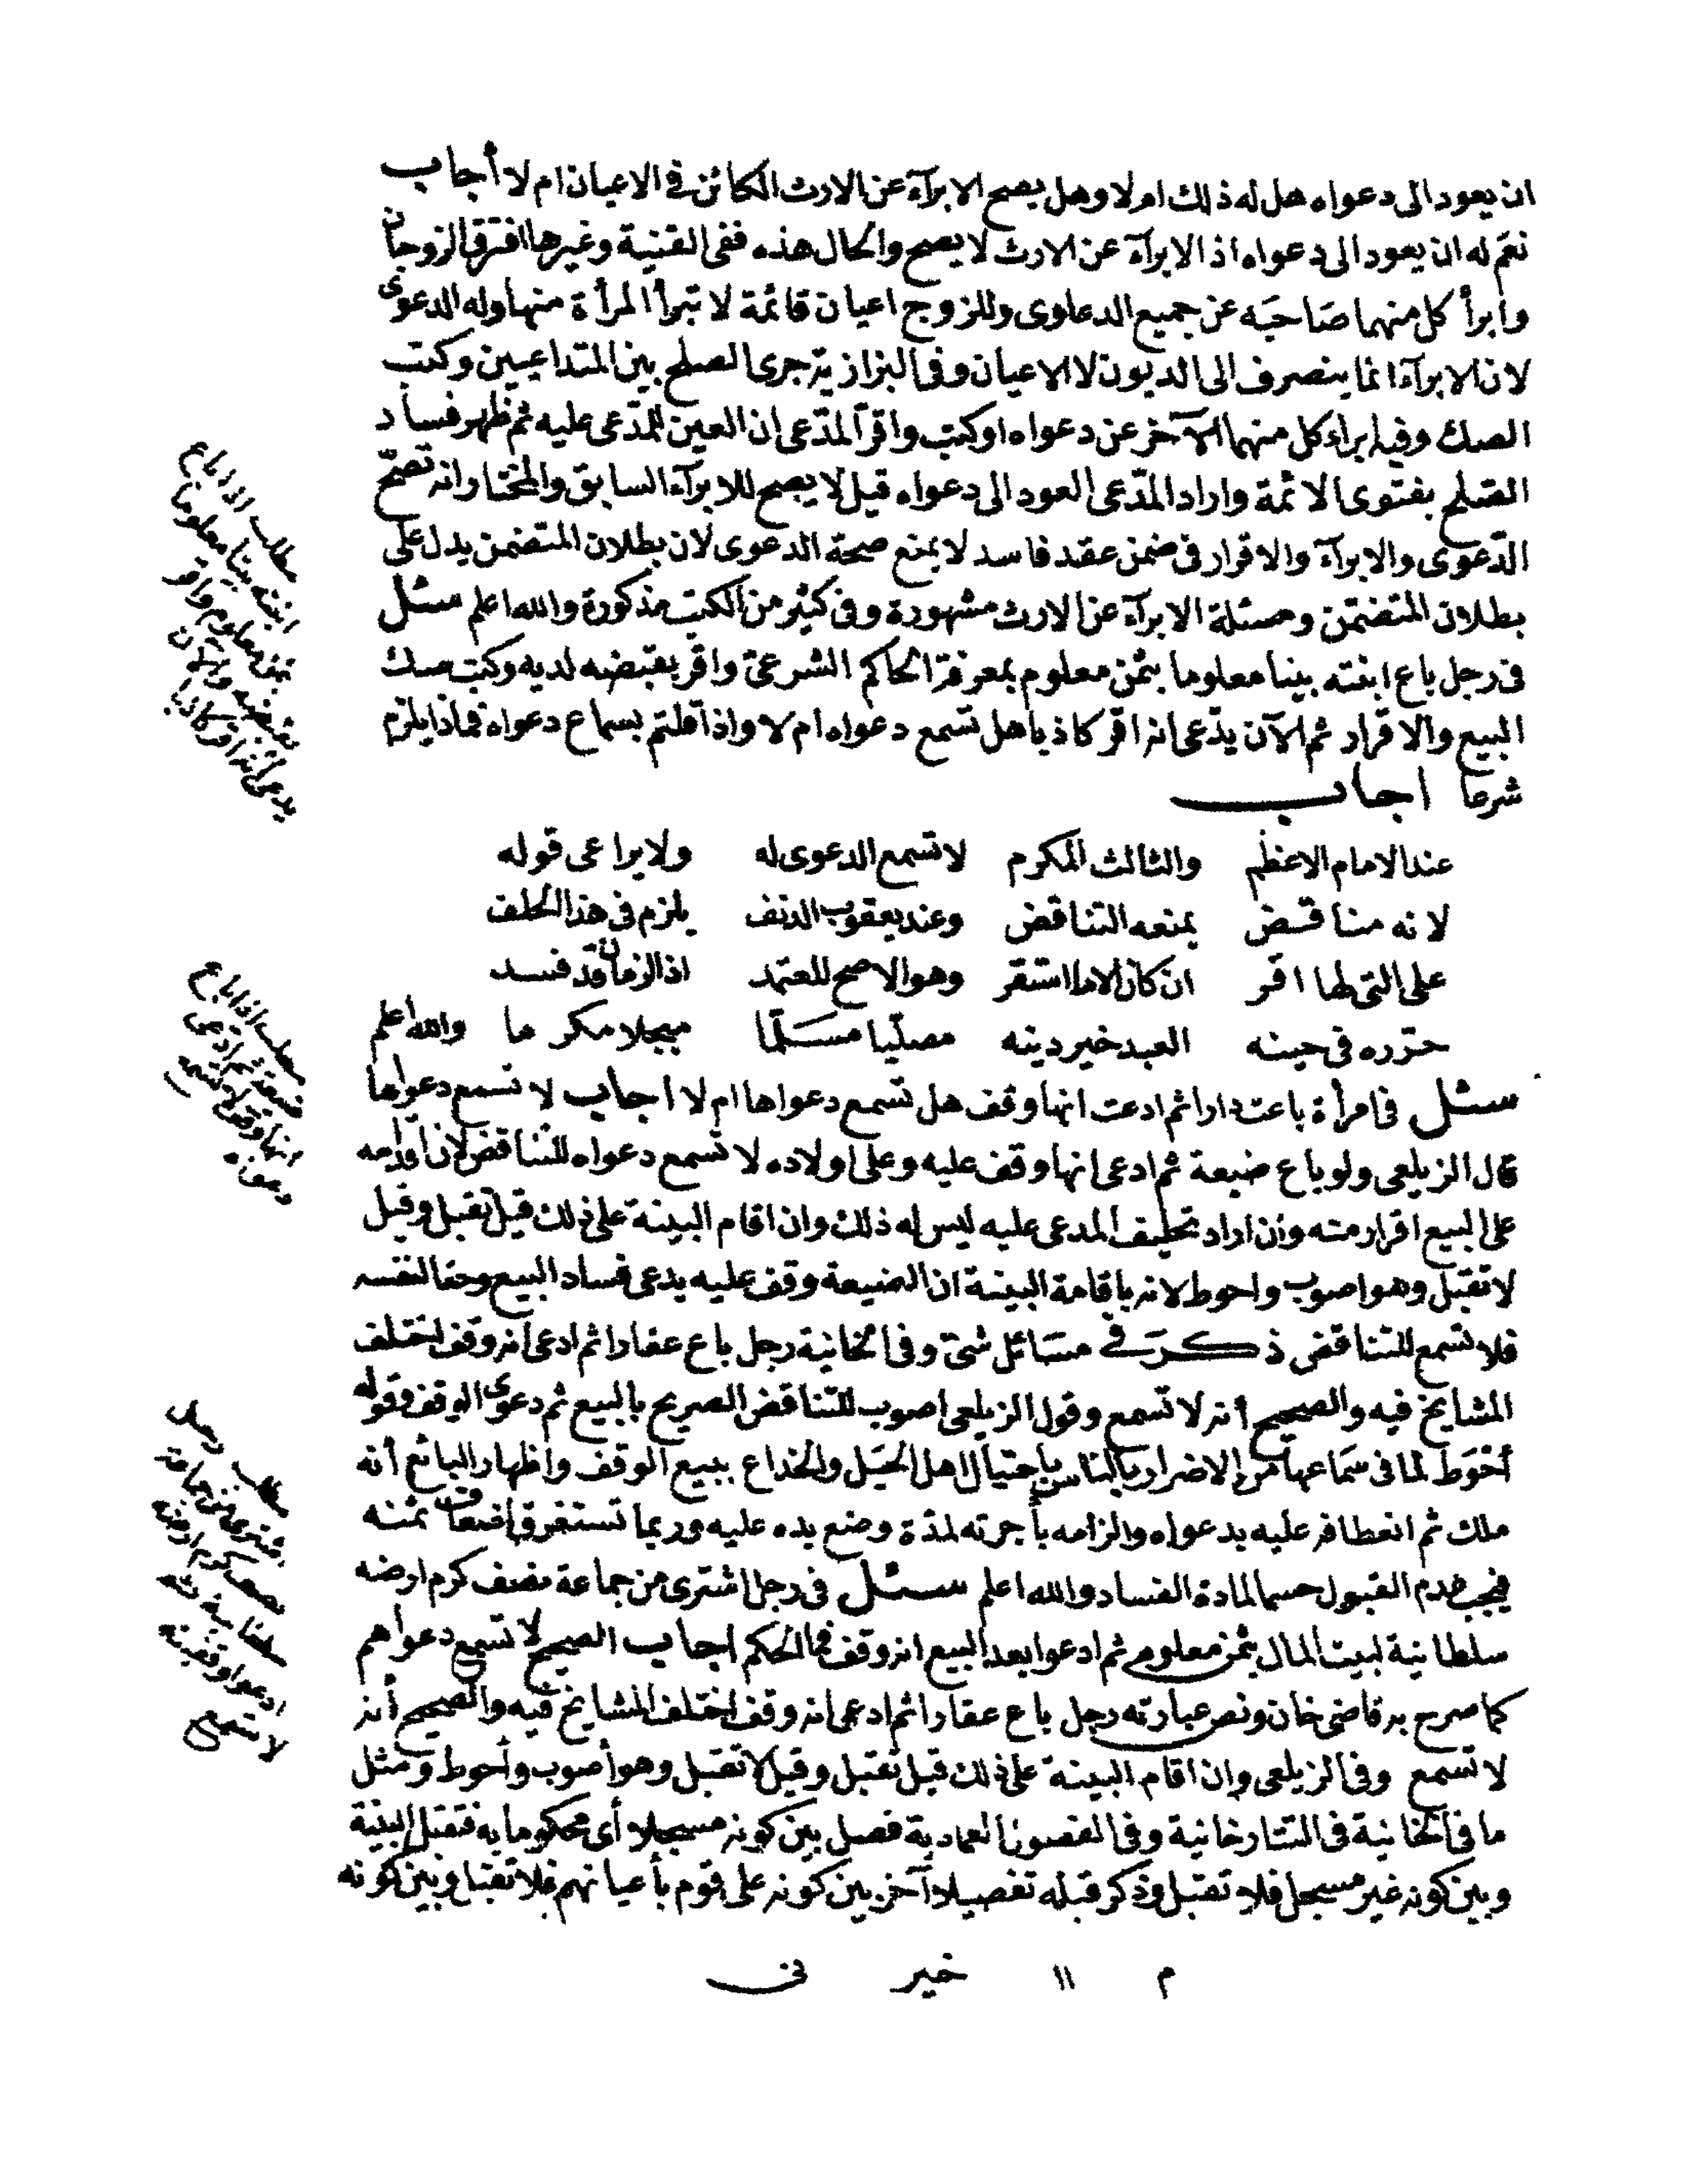 ان يعود الى دعواه هل له ذلك ام لا وهل يصح الابرآء عن الارث الكائن في الاعيان ام لا أجاب
نعم له ان يعود الى دعواه اذ الابرآء عن الارث لا يصح والحال هذه ففى القنية وغيرها افترق الزوجان
وابرأ كل منهما صاحبه عن جميع الدعاوى وللزوج اعيان قائمة لا تبرأ المرأة منها وله الدعوى
لان الابرآء انما ينصرف الى الديون لا الاعيان وفى البزازية جرى الصلح بين المتداعيين وكتب
الصك وفيه ابراء كل منهما الآخر عن دعواه او كتب واقر المدّعى ان العين للمدّعى عليه ثم ظهر فساد
الصّلح بفتوى الائمة واراد المدّعى العود الى دعواه قيل لا يصح للابرآء السابق والمختار انه تصحّ
الدّعوى والابرآء والاقرار فى ضمن عقد فاسد لا يمنع صحة الدعوى لان بطلان المتضمن يدل على
بطلان المتضمّن ومسئلة الابرآء عن الارث مشهورة وفى كثير من الكتب مذكورة والله اعلم سئل
فى رجل باع ابنته بيتا معلوما بثمن معلوم بمعرفة الحاكم الشرعىّ واقر بقبضه لديه وكتب صك
البيع والاقرار ثم الآن يدّعى انه اقر كاذبا هل تسمع دعواه ام لا واذا قلتم بسماع دعواه فماذا يلزم
شرعا اجاب
عند الامام الاعظم والثالث المكرم لا تسمع الدعوى له ولا يراعى قوله
لانه مناقض يمنعه التناقض وعند يعقوب الدنف يلزم فى هذا الحلف
على التى لها اقر ان كان الاما استقر وهو الاصح المعتمد اذ الزمان قد فسد
حرّره فى حينه العبد خير دينه مصلّيا مسَلّما مبجلا مكرما والله اعلم
سئل فى امرأة باعت دارا ثم ادعت انها وقف هل تسمع دعواها ام لا اجاب لا تسمع دعواها
قال الزيلعى ولو باع ضيعة ثم ادعى انها وقف عليه وعلى اولاده لا تسمع دعواه للتناقض لان اقدامه
على البيع اقرار منه وان اراد تحليف المدعى عليه ليس له ذلك وان اقام البينة على ذلك قيل تقبل وقيل
لا تقبل وهو اصوب واحوط لانه باقامة البينة ان الضيعة وقف عليه يدعى فساد البيع وحقا لنفسه
فلا تسمع للتناقض ذكره في مسائل شتى وفى الخانية رجل باع عقارا ثم ادعى انه وقف اختلف
المشايخ فيه والصحيح أنه لا تسمع وقول الزيلعى اصوب للتناقض الصريح بالبيع ثم دعوى الوقف وقوله
أحْوَط لما فى سَمَاعها من الاضرار بالناس باحتيال اهل الحيَل والخداع ببيع الوقف واظهار البائع أنه
ملك ثم انعطافه عليه بدعواه والزامه بأجرته لمدة وضع يده عليه وربما تستغرق اضعاف ثمنه
فيجب عدم القبول حسما لمادة الفساد والله اعلم سئل فى رجل اشترى من جماعة نصف كرم ارضه
سلطانية لبيت المال بثمن معلوم ثم ادعوا بعد البيع انه وقف فما الحكم اجاب الصحيح لا تسمع دعواهم
كما صرح به قاضى خان ونص عبارته رجل باع عقارا ثم ادعى انه وقف اختلف المشايخ فيه والصحيح أنه
لا تسمع وفى الزيلعى وان اقام البينة على ذلك قيل تقبل وقيل لا تقبل وهو أصوب وأحوط ومثل
ما فى الخانية فى التتارخانية وفى الفصول العمادية فصل بين كونه مسجلا أى محكوما به فتقبل البينة
وبين كونه غير مسجل فلا تقبل وذكر قبله تفصيلا آخر بين كونه على قوم بأعيانهم فلا تقبل وبين كونه
م ١١ خير نى
مطلب اذا باع
ابنته بيتا معلوما
بثمن معلوم واقر
بقبضه ثم الآن
يدعى أنه اقر كاذبا
مطلب اذا باع
ضيعة ثم ادعى
انها وقف لا تسمع
دعواه
مطلب رجل
اشترى من جماعة
نصف كرم ارضه
سلطانية ثم
ادعوا وقفيته
لا تسمع